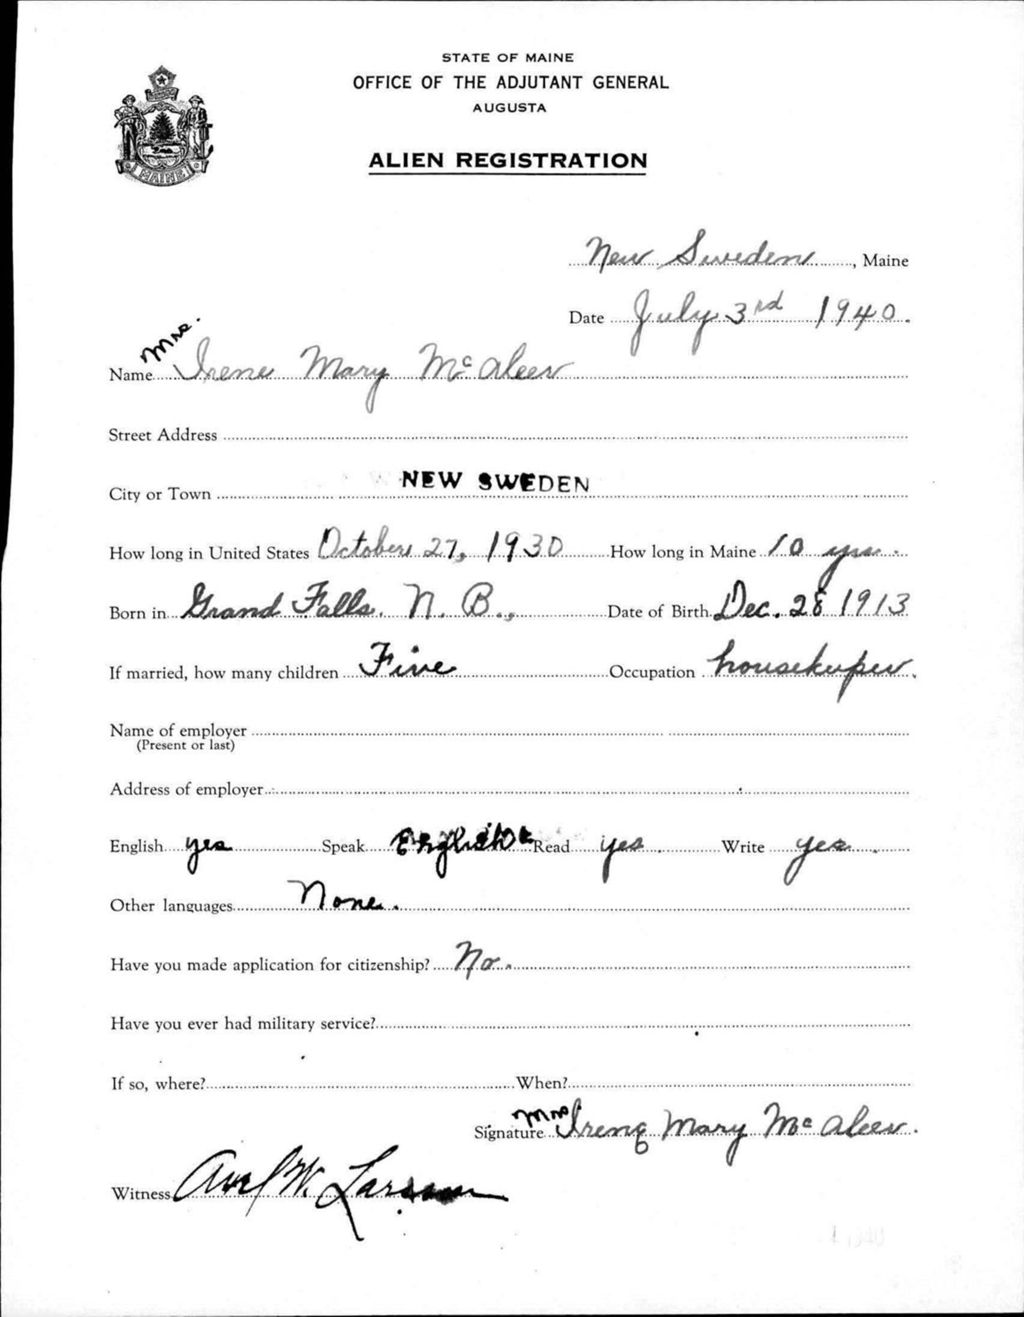 STATE OF MAINE
OFFICE OF THE ADJUTANT GENERAL
AUGUSTA
ALIEN REGISTRATION
MAINE
New Sweden, Maine
Date July 3rd 1940.
Name Mrs. Irene Mary McAleer
Street Address
City or Town NEW SWEDEN
How long in United States October 27, 1930 How long in Maine 10 yrs.
Born in Grand Falls, N. B., Date of Birth Dec. 28 1913
If married, how many children Five Occupation housekeeper.
Name of employer
(Present or last)
Address of employer
English yes Speak English Read yes. Write yes.
Other languages None.
Have you made application for citizenship? No.
Have you ever had military service?
If so, where? When?
Signature Mrs Irene Mary McAleer.
Witness Axel W. Larsson